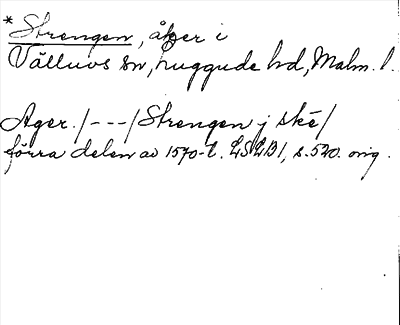 * Strengen, åker i
Välluvs sn, Luggude hd, Malm. l.
Ager. /---/ Strengen j ské/
förra delen av 1570-t. LSLB1, s. 520. orig.